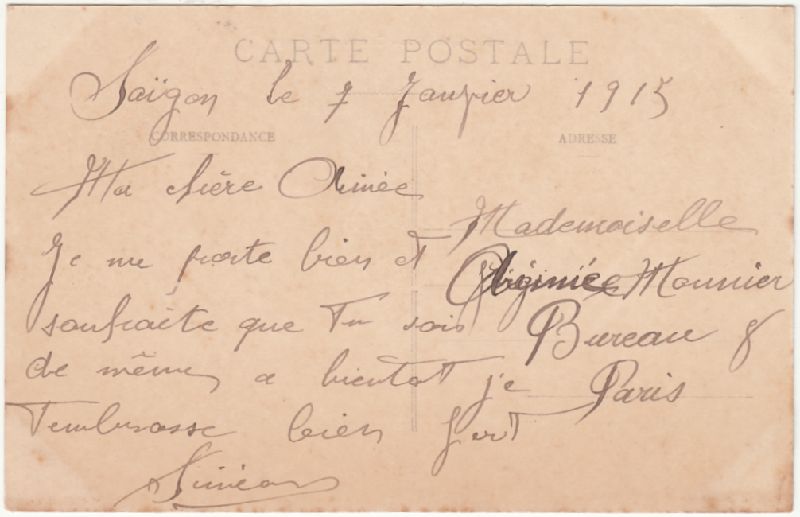 CARTE POSTALE
Saïgon le 7 Janvier 1915
CORRESPONDANCE
ADRESSE
Ma chère Aimée
Je me porte bien et
souhaite que Tu sois
de même, a bientot je
T'embrasse bien fort
Siméon
Mademoiselle
Mounier
Bureau 8
Paris